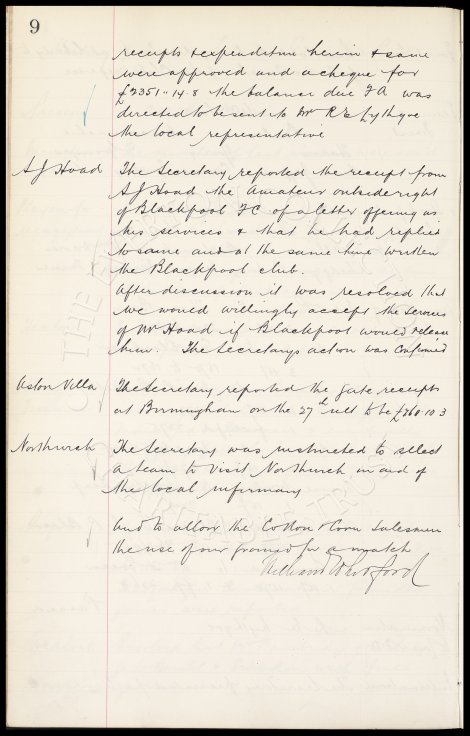 9
receipts & expenditure herein & same
were approved and a cheque for
£2351 " 14 . 8 the balance due F A was
directed to be sent to Mr R E Lythgoe
the local representative
A J Hoad
The Secretary reported the receipt from
A J Hoad the amateur outside right
of Blackpool FC of a letter offering us
his services & that he had replied
to same and at the same time written
the Blackpool club.
After discussion it was resolved that
we would willingly accept the services
of Mr Hoad if Blackpool would release
him. The Secretarys action was confirmed
Aston Villa
The Secretary reported the gate receipts
at Birmingham on the 27th ult to be £760 . 10 3
Northwich
The Secretary was instructed to select
a team to visit Northwich in aid of
the local infirmary
And to allow the Cotton & Corn Salesmen
the use of our ground for a match